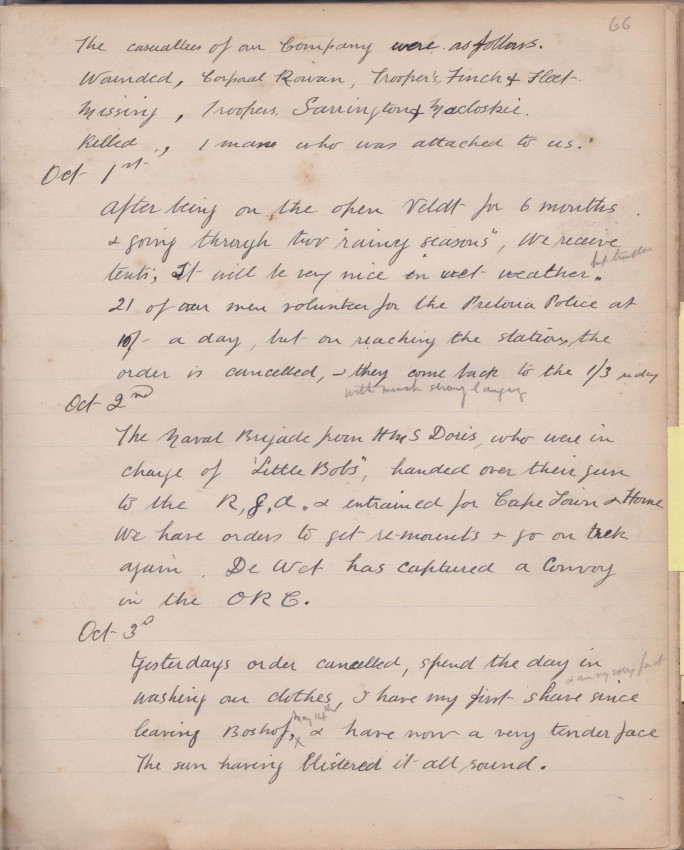 66
The casualties of our Company were as follows.
Wounded, Corporal Rowan, Trooper's, Finch & Flat.
Missing, Troopers Sarrington & Macloskie.
Killed ,, 1 mane who was attached to us.
Oct 1st
After being on the open Veldt for 6 months
& going through two "rainy seasons", We receive
tents; It will be very nice in wet weather.
21 of our men volunteer for the Pretoria Police at
10/- a day, but on reaching the station, the
order is cancelled, & they come back to the 1/3 a day
with much strong language
Oct 2nd
The Naval Brigade from HMS Doris, who were in
charge of "Little Bobs", handed over their gun
to the R, G, A. & entrained for Cape Town & Home
We have orders to get re-mounts & go on trek
again. De Wet has captured a Convoy
in the ORC.
Oct 3d
Yesterdays order cancelled, spend the day in
washing our clothes, I have my first shave since
leaving Boshof, May 14th & have now a very tender face
The sun having blistered it all sound.